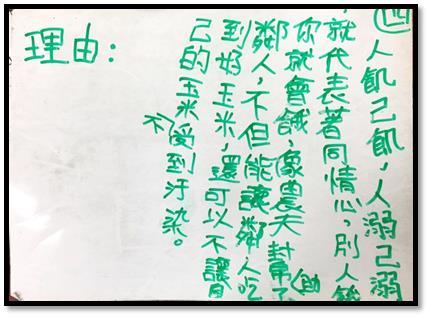 四人飢己飢,人溺己溺
,就代表著同情心,別人餓
你就會餓,像農夫幫助了
鄰人,不但能讓鄰人吃
到好玉米,還可以不讓自
己的玉米不受到汙染。
理由: